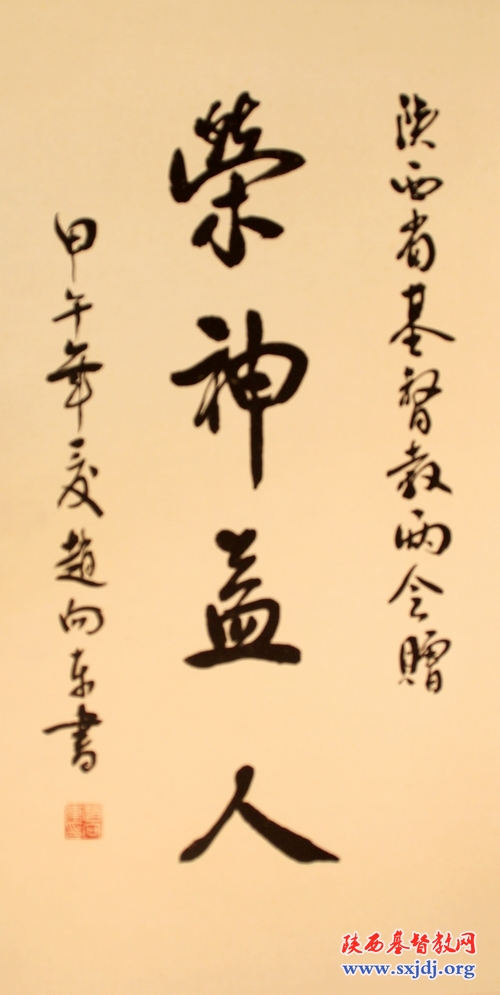 陕西省基督教两会赠
榮神益人
甲午年夏趙向东書
陕西基督教网
www.sxjdj.org